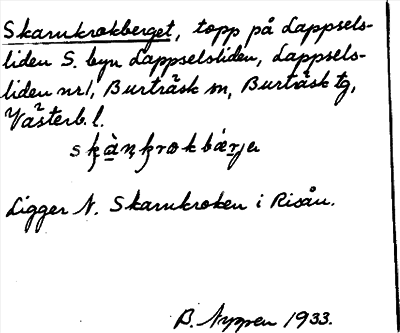 Skarnkrokberget, topp på Lappsels-
liden S. byn Lappselsliden, Lappsels-
liden nr 1, Burträsk sn, Burträsk tg,
Västerb. l.
Ligger N. Skarnkroken i Risån.
B. Nyppen 1933.